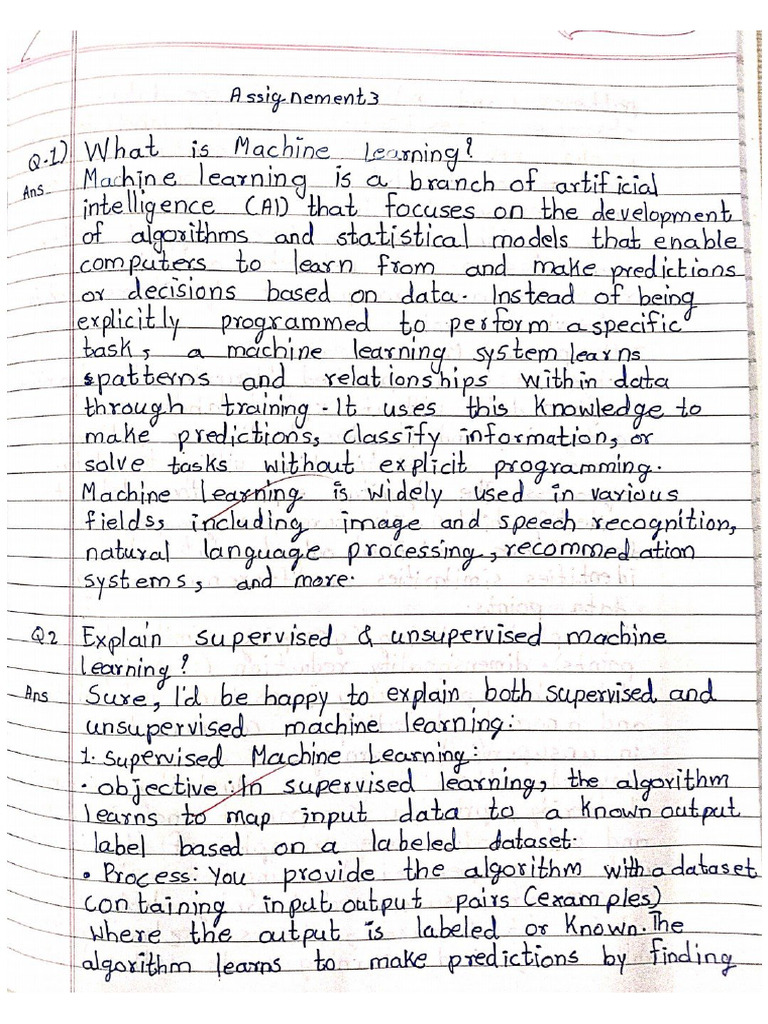 Assignement3
Q.1) What is Machine Learning?
Ans Machine learning is a branch of artificial
intelligence (AI) that focuses on the development
of algorithms and statistical models that enable
computers to learn from and make predictions
or decisions based on data. Instead of being
explicitly programmed to perform a specific
task, a machine learning system learns
patterns and relationships within data
through training. It uses this knowledge to
make predictions, classify information, or
solve tasks without explicit programming.
Machine learning is widely used in various
fields, including image and speech recognition,
natural language processing, recommedation
systems, and more.
Q2 Explain supervised & unsupervised machine
learning?
Ans Sure, I'd be happy to explain both supervised and
unsupervised machine learning:
1. Supervised Machine Learning:
• Objective: In supervised learning, the algorithm
learns to map input data to a known output
label based on a labeled dataset.
• Process: You provide the algorithm with a dataset
containing input output pairs (examples)
where the output is labeled or known. The
algorithm learns to make predictions by finding